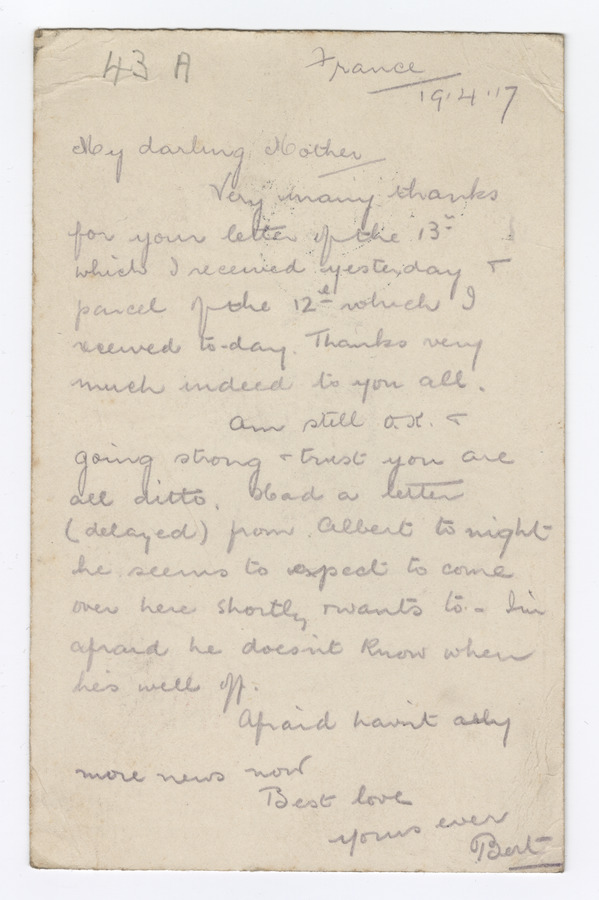 43 A
France
19.4.17
My darling Mother
Very many thanks
for your letter of the 13th
which I received yesterday &
parcel of the 12th which I
received to-day. Thanks very
much indeed to you all.
Am still O.K. &
going strong & trust you are
all ditto. Had a letter
(delayed) from Albert to night
he seems to expect to come
over here shortly & wants to - I'm
afraid he doesn't know when
he's well off.
Afraid havn't any
more news now
Best love
yours ever
Bert